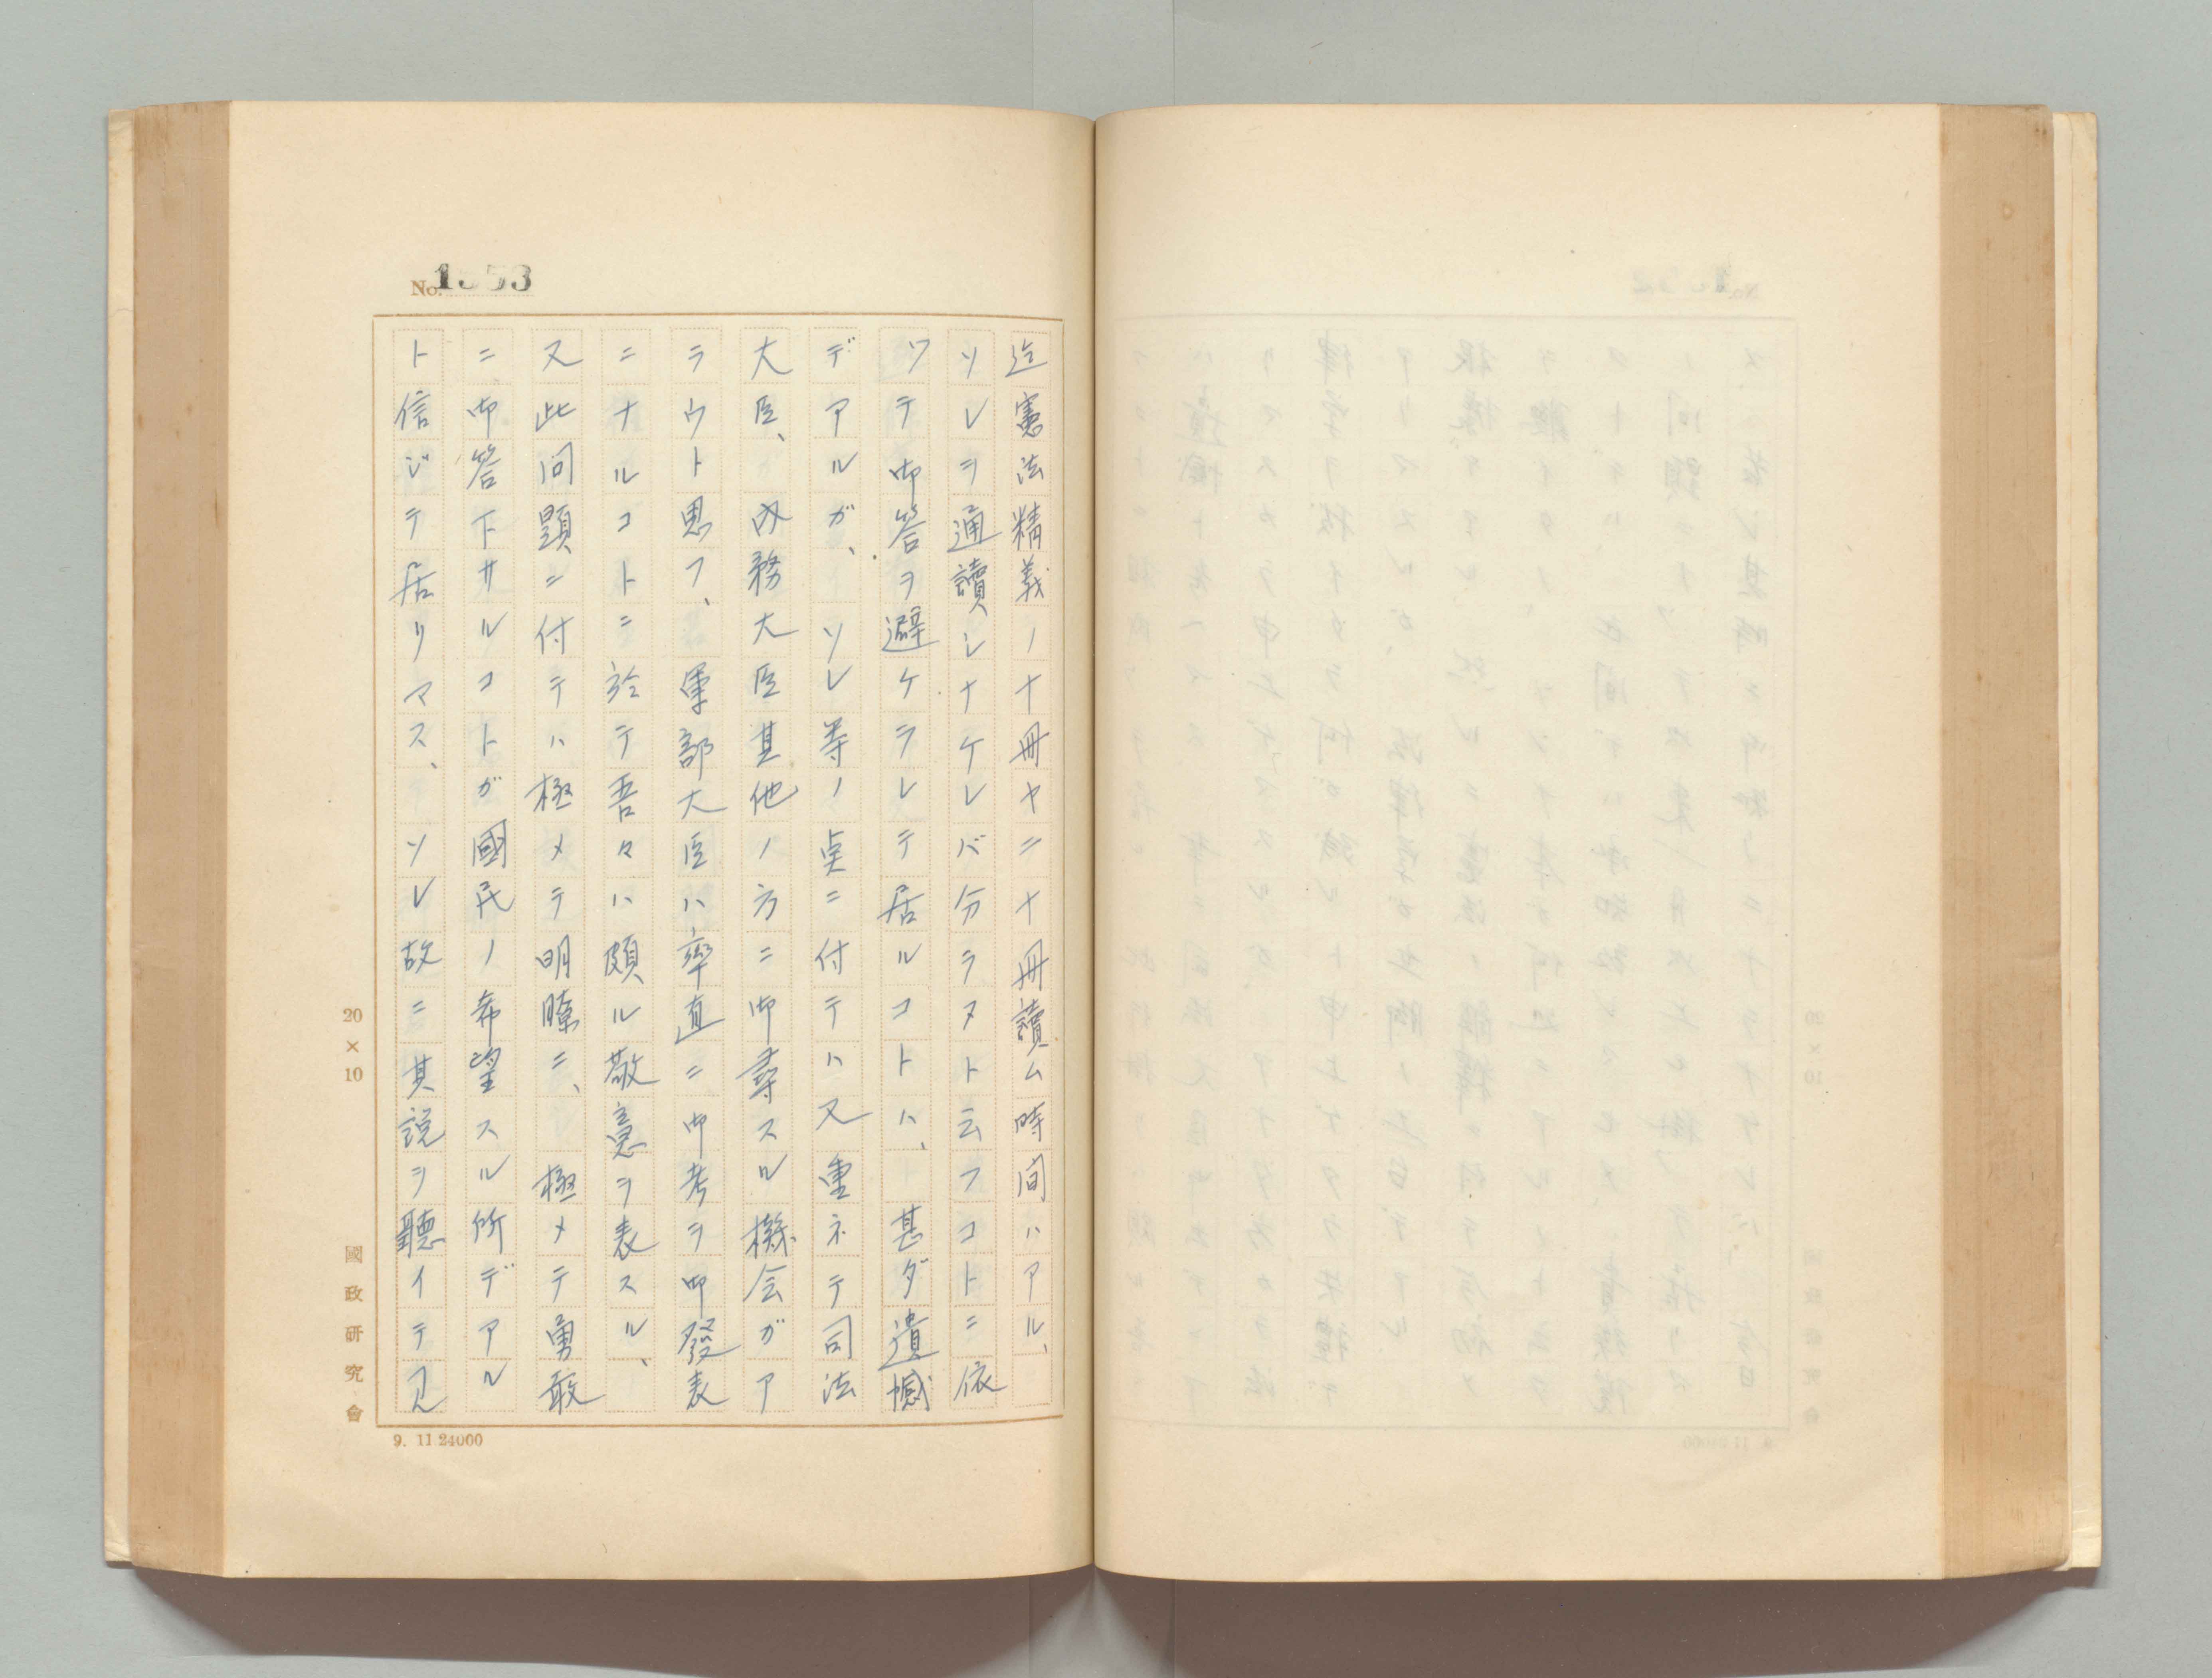 No. 1353
迄憲法精義ノ十冊ヤ二十冊讀ム時間ハアル、
ソレヲ通讀シナケレバ分ラヌト云フコトニ依
ツテ御答ヲ避ケラレテ居ルコトハ、甚ダ遺憾
デアルガ、ソレ等ノ点ニ付テハ又重ネテ司法
大臣、内務大臣其他ノ方ニ御尋スル機会ガア
ラウト思フ、軍部大臣ハ率直ニ御考ヲ御發表
ニナルコトニ於テ吾々ハ頗ル敬意ヲ表スル、
又此問題ニ付テハ極メテ明瞭ニ、極メテ勇敢
ニ、御答下サルコトガ國民ノ希望スル所デアル
ト信ジテ居リマス、ソレ故ニ其説ヲ聽イテ見
20×10
國政研究會
9. 11.24000